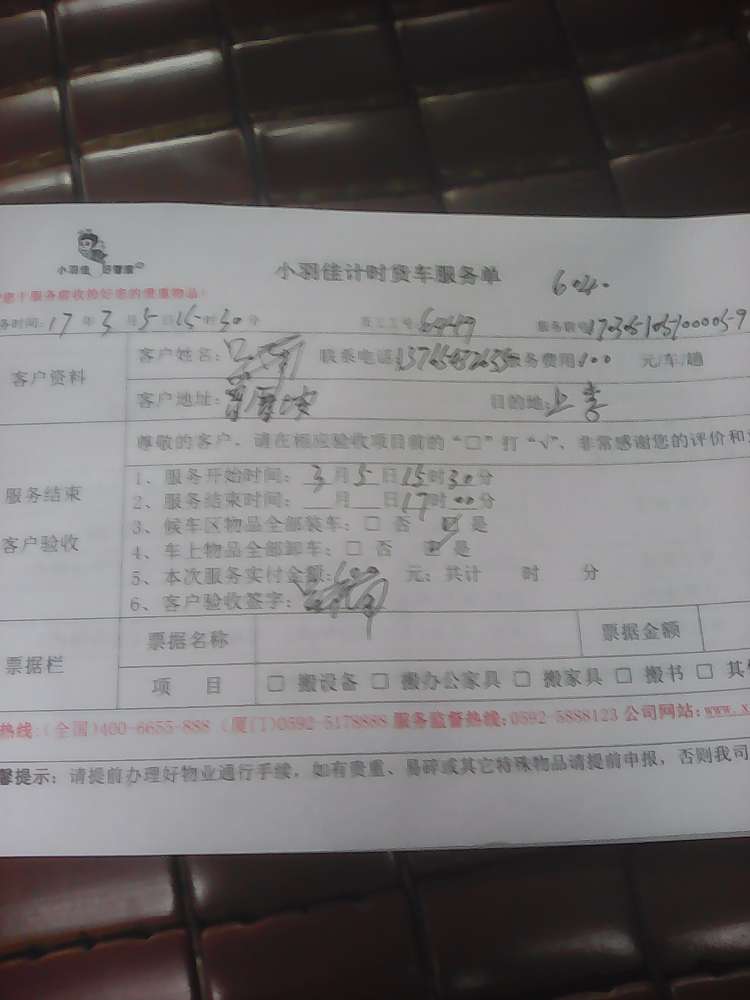 小羽佳 好管家
小羽佳计时货车服务单 604.
服务前收拾好您的贵重物品!
务时间:17年3月5日15时30分
客户资料
客户姓名: 联系电话: 服务费用100 元/车/趟
客户地址: 目的地:
尊敬的客户,请在相应验收项目前的“□”打“√”,非常感谢您的评价和
服务结束
客户验收
1、服务开始时间:3月5日15时30分
2、服务结束时间: 月 日17时00分
3、候车区物品全部装车:□ 否 ☑ 是
4、车上物品全部卸车:□ 否 ☑ 是
5、本次服务实付金额: 元;共计 时 分
6、客户验收签字:
票据栏
票据名称 票据金额
项 目 □ 搬设备 □ 搬办公家具 □ 搬家具 □ 搬书 □ 其
热线:(全国)400-6655-888 (厦门)0592-5178888 服务监督热线:0592-5888123 公司网站:www.x
馨提示:请提前办理好物业通行手续,如有贵重、易碎或其它特殊物品请提前申报,否则我司